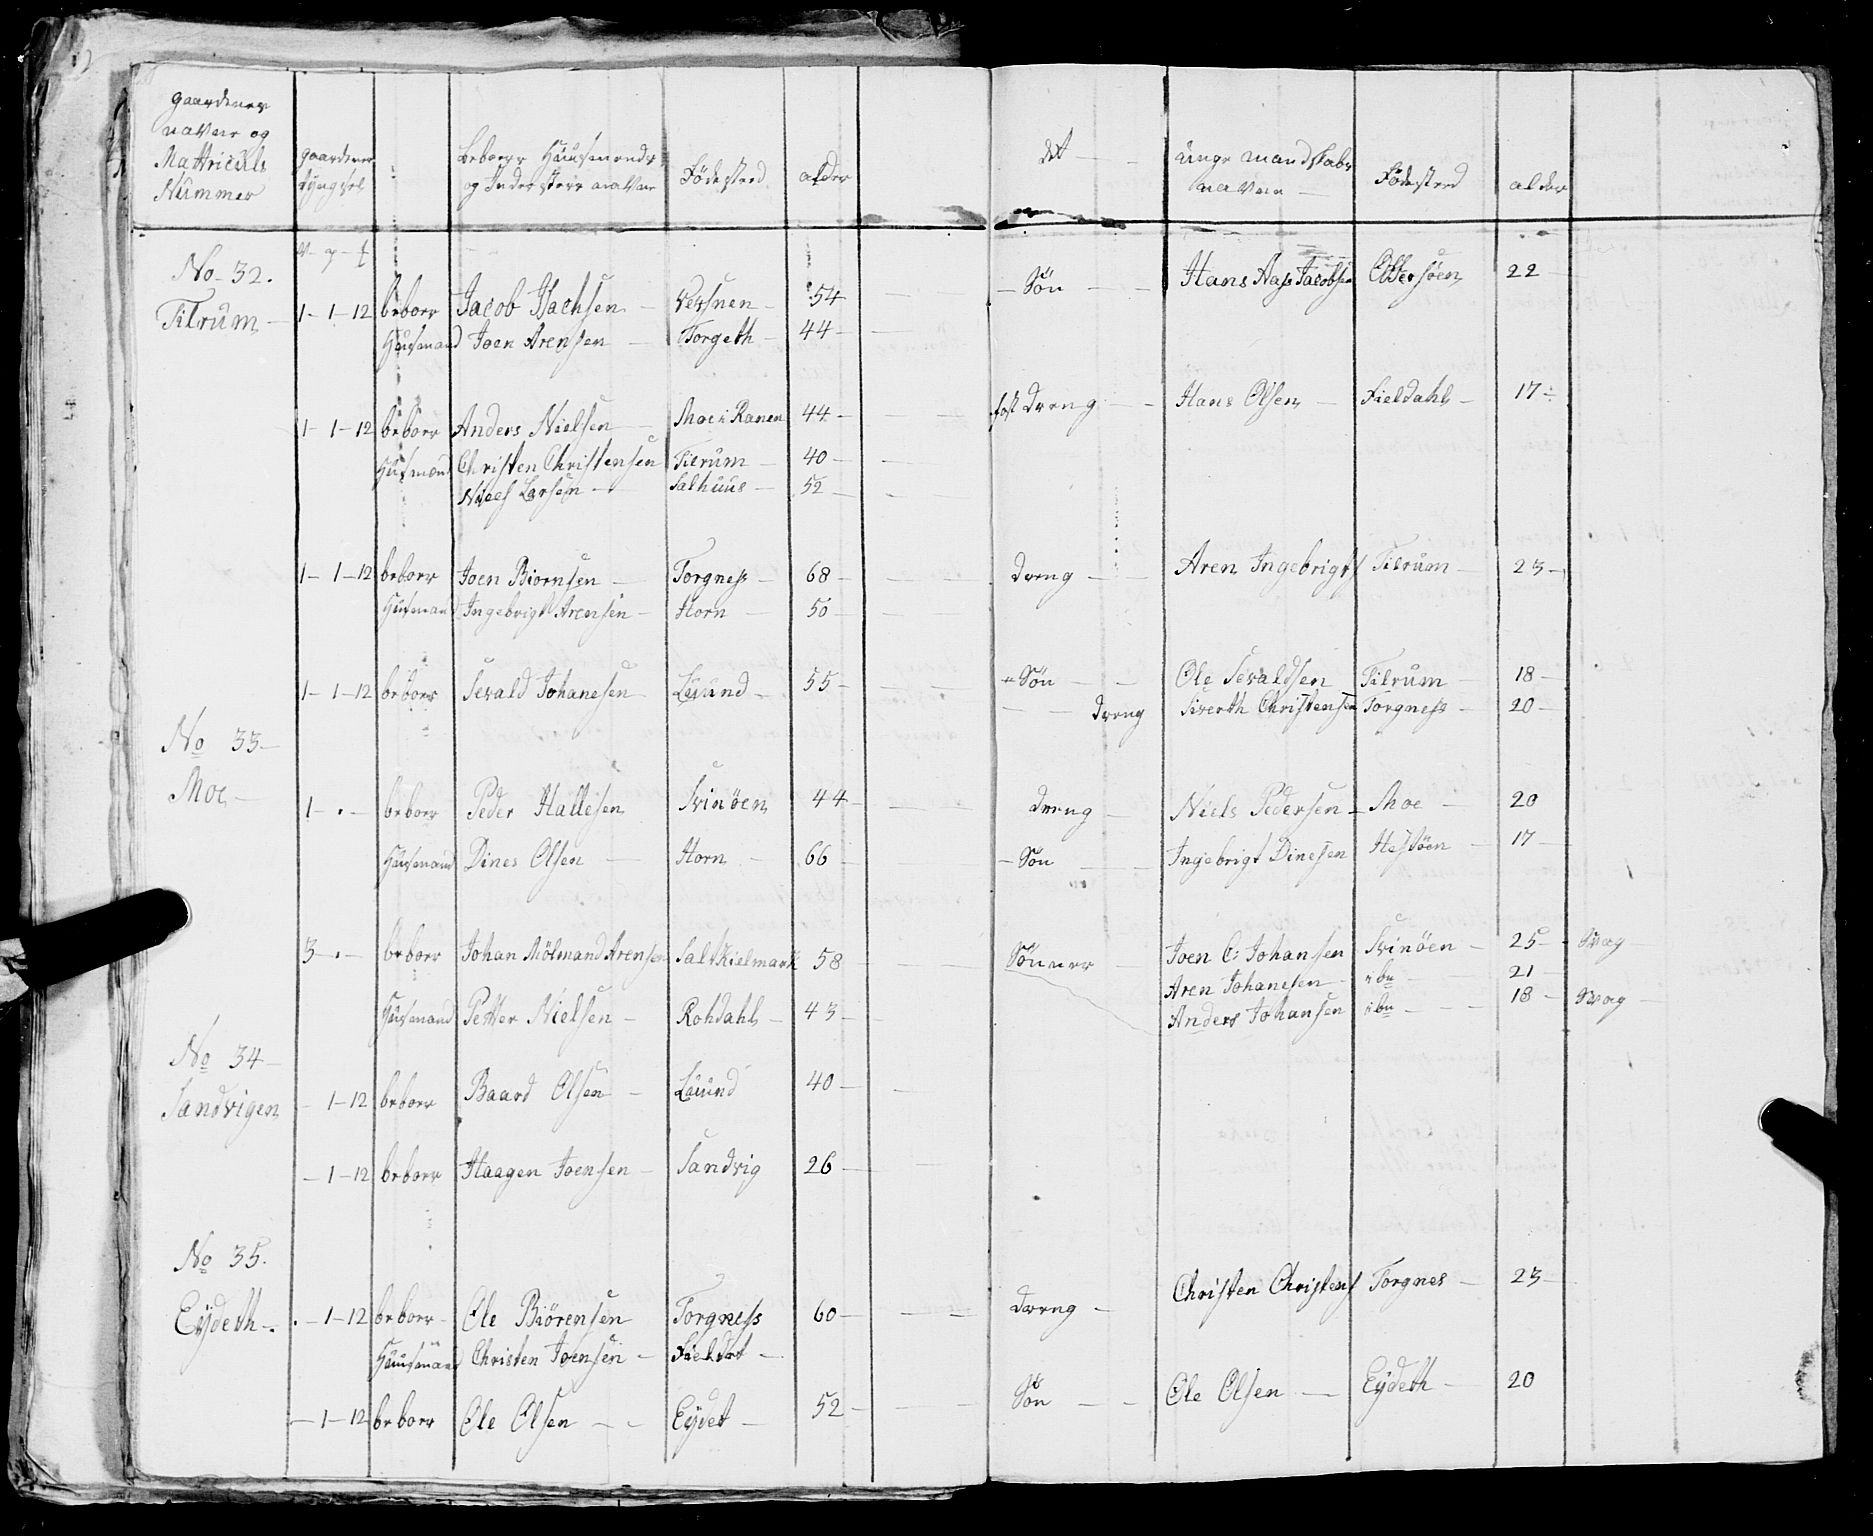 gaardenes
navne og
Mattriculs
Nummer
gaardenes
tyngsel
beboere Huusmends
og Indersters navne
Födested
alder
det
unge mandskabs
navne
Födested
alder
No 32.
Tilrum
1-1-12 beboer Jacob Isachsen Vefsnen 54 - Søn Hans Aas Jacobsen 22
Huusmand Joen Arensen Torgeth 44
1-1-12 beboer Anders Nielsen Moe i Ranen 44 fost dreng Hans Olsen Fieldahl 17
Huusmand Christen Christensen Tilrum 40
Niels Larsen Salhuus 52
1-1-12 beboer Joen Biornsen Torgness 68 dreng Aren Ingebrigts Tilrum 23
Huusmand Ingebrigt Arensen Horn 50
1-1-12 beboer Sevald Johanesen 55 - Søn Ole Sevaldsen Tilrum 18
dreng Siverth Christensen Torgness 20
No 33
Moe
1 - . - beboer Peder Hallesen Svinöen 44 dreng Niels Pedersen Moe 20
Huusmand Dines Olsen Horn 66 - Søn Ingebrigt Dinesen Hestöen 17
3 - . - beboer Johan Mölmand Arensen 58 Sønner Joen C: Johansen Svinöen 25 Svag
Aren Johanesen ibn 21
Huusmand Petter Nielsen Rohdahl 43 Anders Johansen ibn 18 Svag
No 34
Sandvigen
- 1-12 beboer Baard Olsen 40
- 1-12 beboer Haagen Joensen Sandvig 26
No 35.
Eydeth
. - 1-12 beboer Ole Biörensen Torgness 60 dreng Christen Christens Torgnes 23
Huusmand Christen Joensen
- 1-12 beboer Ole Olsen Eydet 52 Søn Ole Olsen Eydeth 20